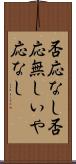 否応なし否
応無しいや
応なし